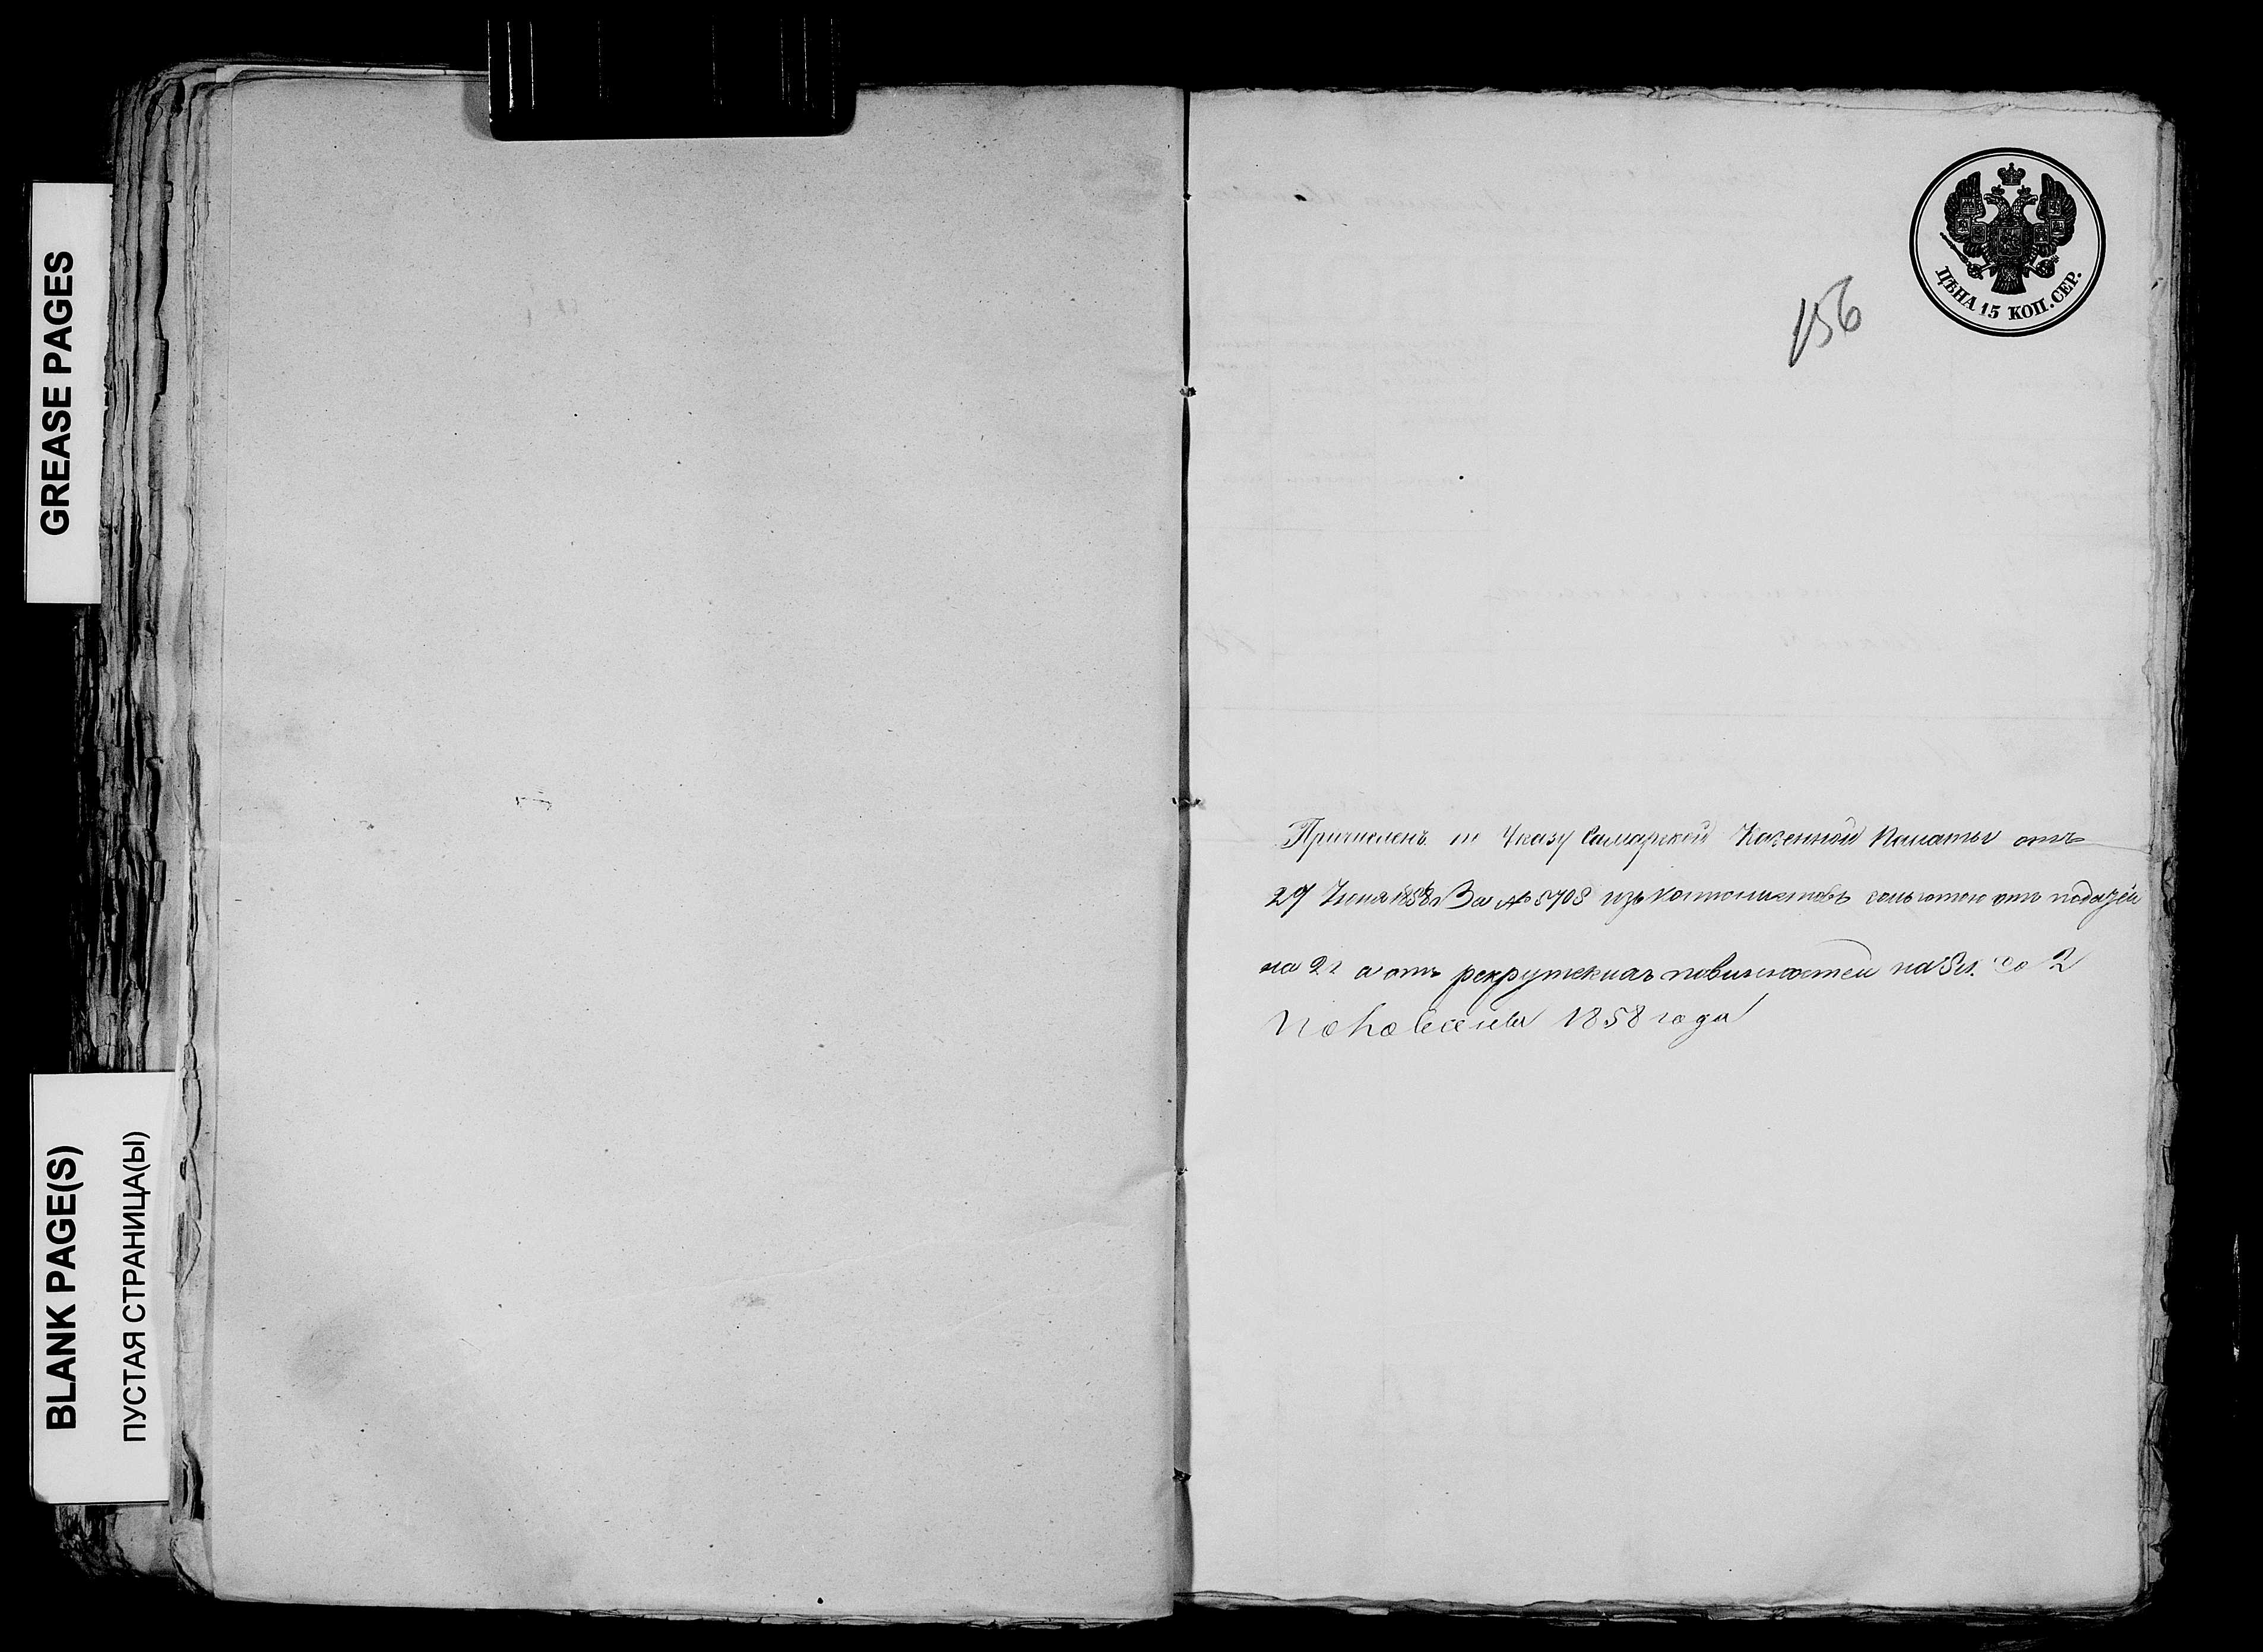 GREASE PAGES
BLANK PAGE(S)
ПУСТАЯ СТРАНИЦА(Ы)
ЦѢНА 15 КОП. СЕР.
156
Причисленъ по Указу Самарской Казенной Палаты отъ
29 Июня 1858 г За № 5708 изъ кантонистовъ сольготою отъ податей
на 2 г а отъ рекрутскихъ повинностей на 3 г. со 2
половины 1858 года